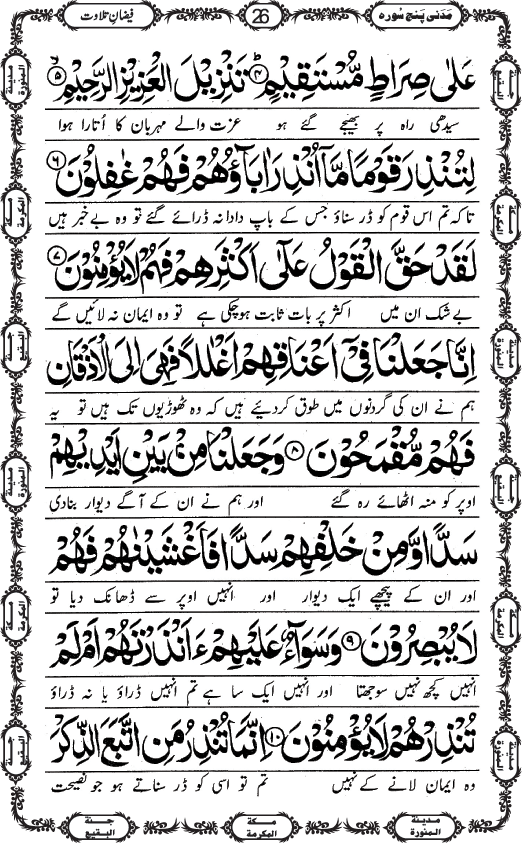 مَدَنی پَنج سُورہ
26
فیضانِ تلاوت
عَلٰى صِرَاطٍ مُّسْتَقِیْمٍ ؕ﴿۴﴾ تَنْزِیْلَ الْعَزِیْزِ الرَّحِیْمِ ۙ﴿۵﴾
سیدھی راہ پر بھیجے گئے ہو عزت والے مہربان کا اُتارا ہوا
لِتُنْذِرَ قَوْمًا مَّاۤ اُنْذِرَ اٰبَآؤُهُمْ فَهُمْ غٰفِلُوْنَ ﴿۶﴾
تاکہ تم اس قوم کو ڈر سناؤ جس کے باپ دادا نہ ڈرائے گئے تو وہ بے خبر ہیں
لَقَدْ حَقَّ الْقَوْلُ عَلٰۤى اَكْثَرِهِمْ فَهُمْ لَا یُؤْمِنُوْنَ ﴿۷﴾
بے شک ان میں اکثر پر بات ثابت ہوچکی ہے تو وہ ایمان نہ لائیں گے
اِنَّا جَعَلْنَا فِیْۤ اَعْنَاقِهِمْ اَغْلٰلًا فَهِیَ اِلَى الْاَذْقَانِ
ہم نے ان کی گردنوں میں طوق کردئیے ہیں کہ وہ ٹھوڑیوں تک ہیں تو یہ
فَهُمْ مُّقْمَحُوْنَ ﴿۸﴾ وَ جَعَلْنَا مِنْۢ بَیْنِ اَیْدِیْهِمْ
اوپر کو منہ اٹھائے رہ گئے اور ہم نے ان کے آگے دیوار بنادی
سَدًّا وَّ مِنْ خَلْفِهِمْ سَدًّا فَاَغْشَیْنٰهُمْ فَهُمْ
اور ان کے پیچھے ایک دیوار اور انہیں اوپر سے ڈھانک دیا تو
لَا یُبْصِرُوْنَ ﴿۹﴾ وَ سَوَآءٌ عَلَیْهِمْ ءَاَنْذَرْتَهُمْ اَمْ لَمْ
انہیں کچھ نہیں سوجھتا اور انہیں ایک سا ہے تم انہیں ڈراؤ یا نہ ڈراؤ
تُنْذِرْهُمْ لَا یُؤْمِنُوْنَ ﴿۱۰﴾ اِنَّمَا تُنْذِرُ مَنِ اتَّبَعَ الذِّكْرَ
وہ ایمان لانے کے نہیں تم تو اسی کو ڈر سناتے ہو جو نصیحت
مدینة المنورة
مكة المكرمة
جنة البقيع
مدینة المنورة
مكة المكرمة
جنة البقيع
جنة البقيع
مكة المكرمة
مدینة المنورة
جنة البقيع
مكة المكرمة
مدینة المنورة
مدینة المنورة
مكة المكرمة
جنة البقيع